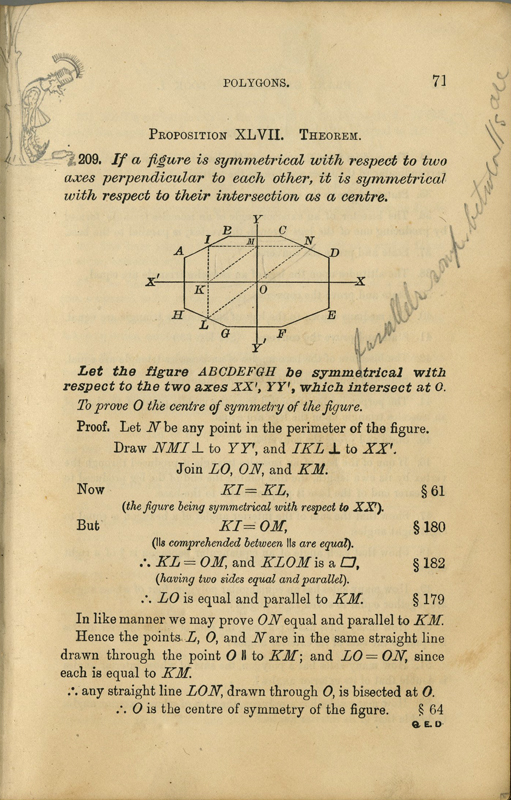 POLYGONS. 71
PROPOSITION XLVII. THEOREM.
209. If a figure is symmetrical with respect to two
axes perpendicular to each other, it is symmetrical
with respect to their intersection as a centre.
Y
B C
I M N
A D
X' K O X
H E
L
G F
Y'
Parallels comp. between ||s are
Let the figure ABCDEFGH be symmetrical with
respect to the two axes XX', YY', which intersect at O.
To prove O the centre of symmetry of the figure.
Proof. Let N be any point in the perimeter of the figure.
Draw NMI ⊥ to YY', and IKL ⊥ to XX'.
Join LO, ON, and KM.
Now KI = KL, § 61
(the figure being symmetrical with respect to XX').
But KI = OM, § 180
(||s comprehended between ||s are equal).
∴ KL = OM, and KLOM is a ▱, § 182
(having two sides equal and parallel).
∴ LO is equal and parallel to KM. § 179
In like manner we may prove ON equal and parallel to KM.
Hence the points L, O, and N are in the same straight line
drawn through the point O || to KM; and LO = ON, since
each is equal to KM.
∴ any straight line LON, drawn through O, is bisected at O.
∴ O is the centre of symmetry of the figure. § 64
Q. E. D